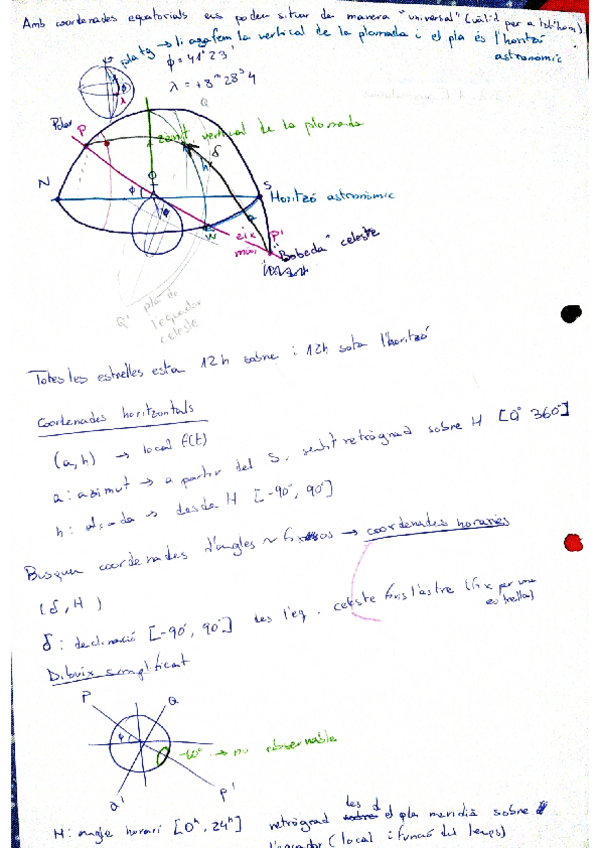 Amb coordenades equatorials ens poden situar de manera "universal" (vàlid per a tothom)
pla tg → li agafem la vertical de la plomada i el pla és l'horitzó
astronòmic
φ = 41° 23'
λ = +8ᵐ 28ˢ 4
Q
Polar
P
zènit vertical de la plomada
δ
h
N
φ
O
S
Horitzó astronòmic
φ
a
W
eix
món
P'
"Bobeda" celeste
Q' pla de
l'equador
celeste
Totes les estrelles esta 12h sobre i 12h sota l'horitzó
Coordenades horitzontals
(a, h) → local f(t)
a: azimut → a partir del S, sentit retrògrad sobre H [0° 360°]
h: → desde H [-90°, 90°]
Busquem coordenades d'angles ~ fixos → coordenades horaries
(δ, H)
δ: declinació [-90°, 90°] des l'eq. celeste fins l'astre (fix per una
estrella)
Dibuix simplificat
P
Q
φ
-60° → no observable
Q'
P'
H: angle horari [0ʰ, 24ʰ] retrògrad des d el pla meridià sobre
l'equador (local i funció del temps)